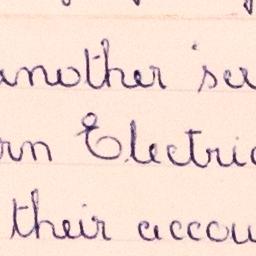 another 'se
rn Electric
their accou